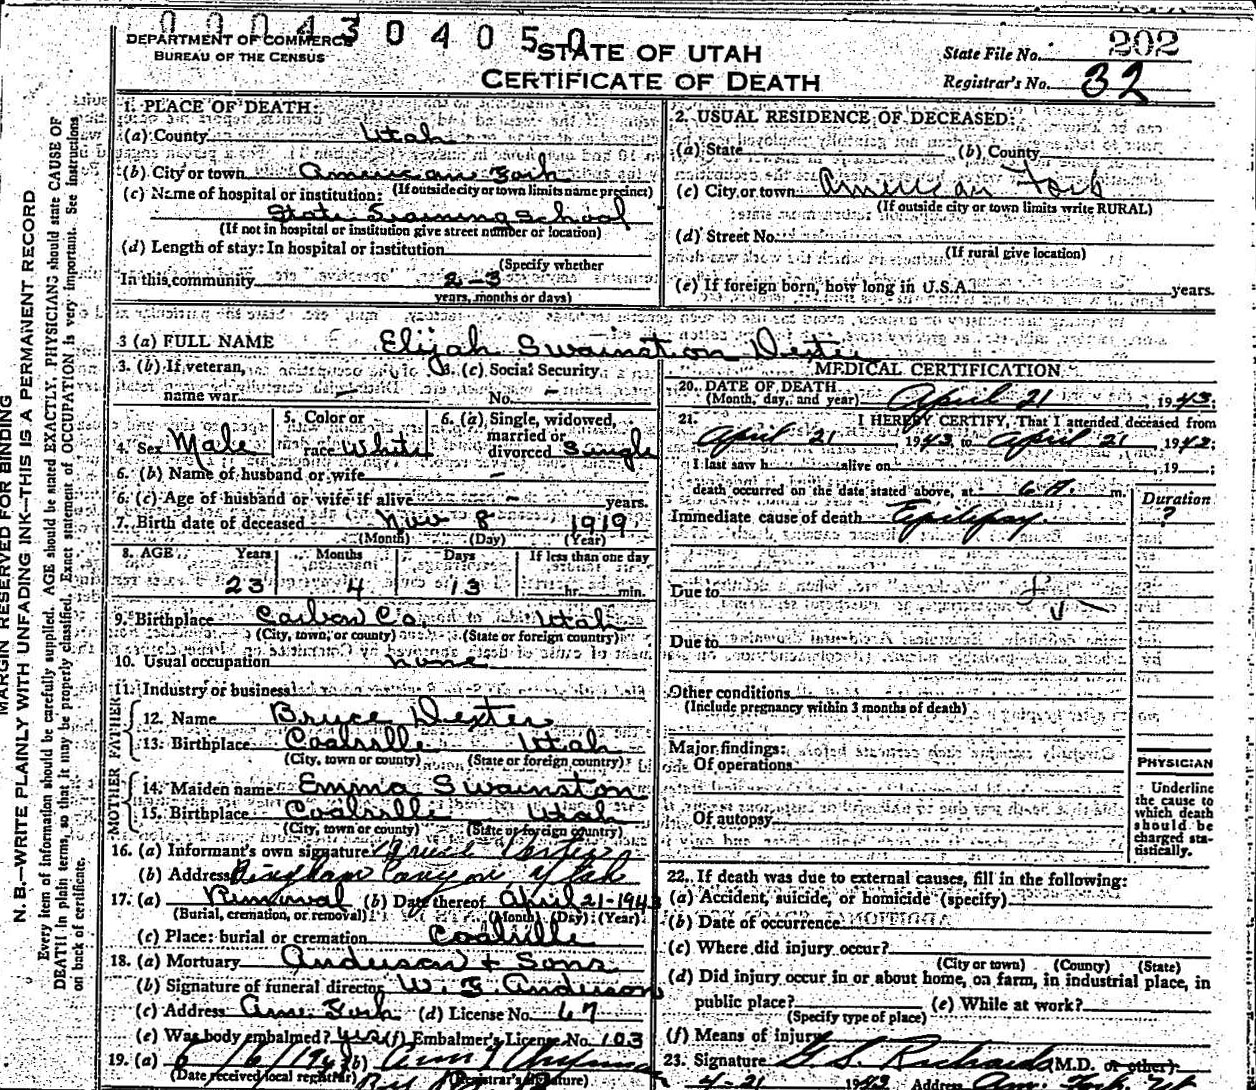 0 0 0 4 3 0 4 0 5 0
DEPARTMENT OF COMMERCE
BUREAU OF THE CENSUS
STATE OF UTAH
CERTIFICATE OF DEATH
State File No. 202
Registrar's No. 32
MARGIN RESERVED FOR BINDING
N. B.—WRITE PLAINLY WITH UNFADING INK—THIS IS A PERMANENT RECORD
Every item of information should be carefully supplied. AGE should be stated EXACTLY. PHYSICIANS should state CAUSE OF
DEATH in plain terms, so that it may be properly classified. Exact statement of OCCUPATION is very important. See instructions
on back of certificate.
1. PLACE OF DEATH:
(a) County Utah
(b) City or town American Fork
(If outside city or town limits name precinct)
(c) Name of hospital or institution:
State Training School
(If not in hospital or institution give street number or location)
(d) Length of stay: In hospital or institution
(Specify whether
In this community 2-3
years, months or days)
2. USUAL RESIDENCE OF DECEASED:
(a) State (b) County
(c) City or town American Fork
(If outside city or town limits write RURAL)
(d) Street No.
(If rural give location)
(e) If foreign born, how long in U.S.A. years.
3 (a) FULL NAME Elijah Swainston Dexter
3. (b) If veteran, name war –
3. (c) Social Security No. –
4. Sex Male
5. Color or race White
6. (a) Single, widowed, married or divorced Single
6. (b) Name of husband or wife –
6. (c) Age of husband or wife if alive – years.
7. Birth date of deceased Nov 8 1919
(Month) (Day) (Year)
8. AGE Years Months Days If less than one day
23 4 13 hr. min.
9. Birthplace Carbon Co. Utah
(City, town, or county) (State or foreign country)
10. Usual occupation none
11. Industry or business
FATHER
12. Name Bruce Dexter
13. Birthplace Coalville Utah
(City, town or county) (State or foreign country)
MOTHER
14. Maiden name Emma Swainston
15. Birthplace Coalville Utah
(City, town or county) (State or foreign country)
16. (a) Informant's own signature Bruce Dexter
(b) Address Bingham Canyon Utah
17. (a) Removal (b) Date thereof April 21-1943
(Burial, cremation, or removal) (Month) (Day) (Year)
(c) Place: burial or cremation Coalville
18. (a) Mortuary Anderson & Sons
(b) Signature of funeral director W. E. Anderson
(c) Address Am. Fork (d) License No. 67
(e) Was body embalmed? yes (f) Embalmer's License No. 103
19. (a) (b)
(Date received local registrar) (Registrar's signature)
MEDICAL CERTIFICATION
20. DATE OF DEATH
(Month, day, and year) April 21 1943
21. I HEREBY CERTIFY, That I attended deceased from
April 21 1943 to April 21 1942;
I last saw h alive on , 19 ;
death occurred on the date stated above, at 6 A. m.
Duration
Immediate cause of death Epilepsy. ?
Due to
Due to
Other conditions
(Include pregnancy within 3 months of death)
Major findings:
Of operations
Of autopsy
PHYSICIAN
Underline
the cause to
which death
should be
charged sta-
tistically.
22. If death was due to external causes, fill in the following:
(a) Accident, suicide, or homicide (specify)
(b) Date of occurrence
(c) Where did injury occur?
(City or town) (County) (State)
(d) Did injury occur in or about home, on farm, in industrial place, in
public place? (e) While at work?
(Specify type of place)
(f) Means of injury
23. Signature G. S. Richards M.D. or other)
4-21 1943 Address Am. Fork